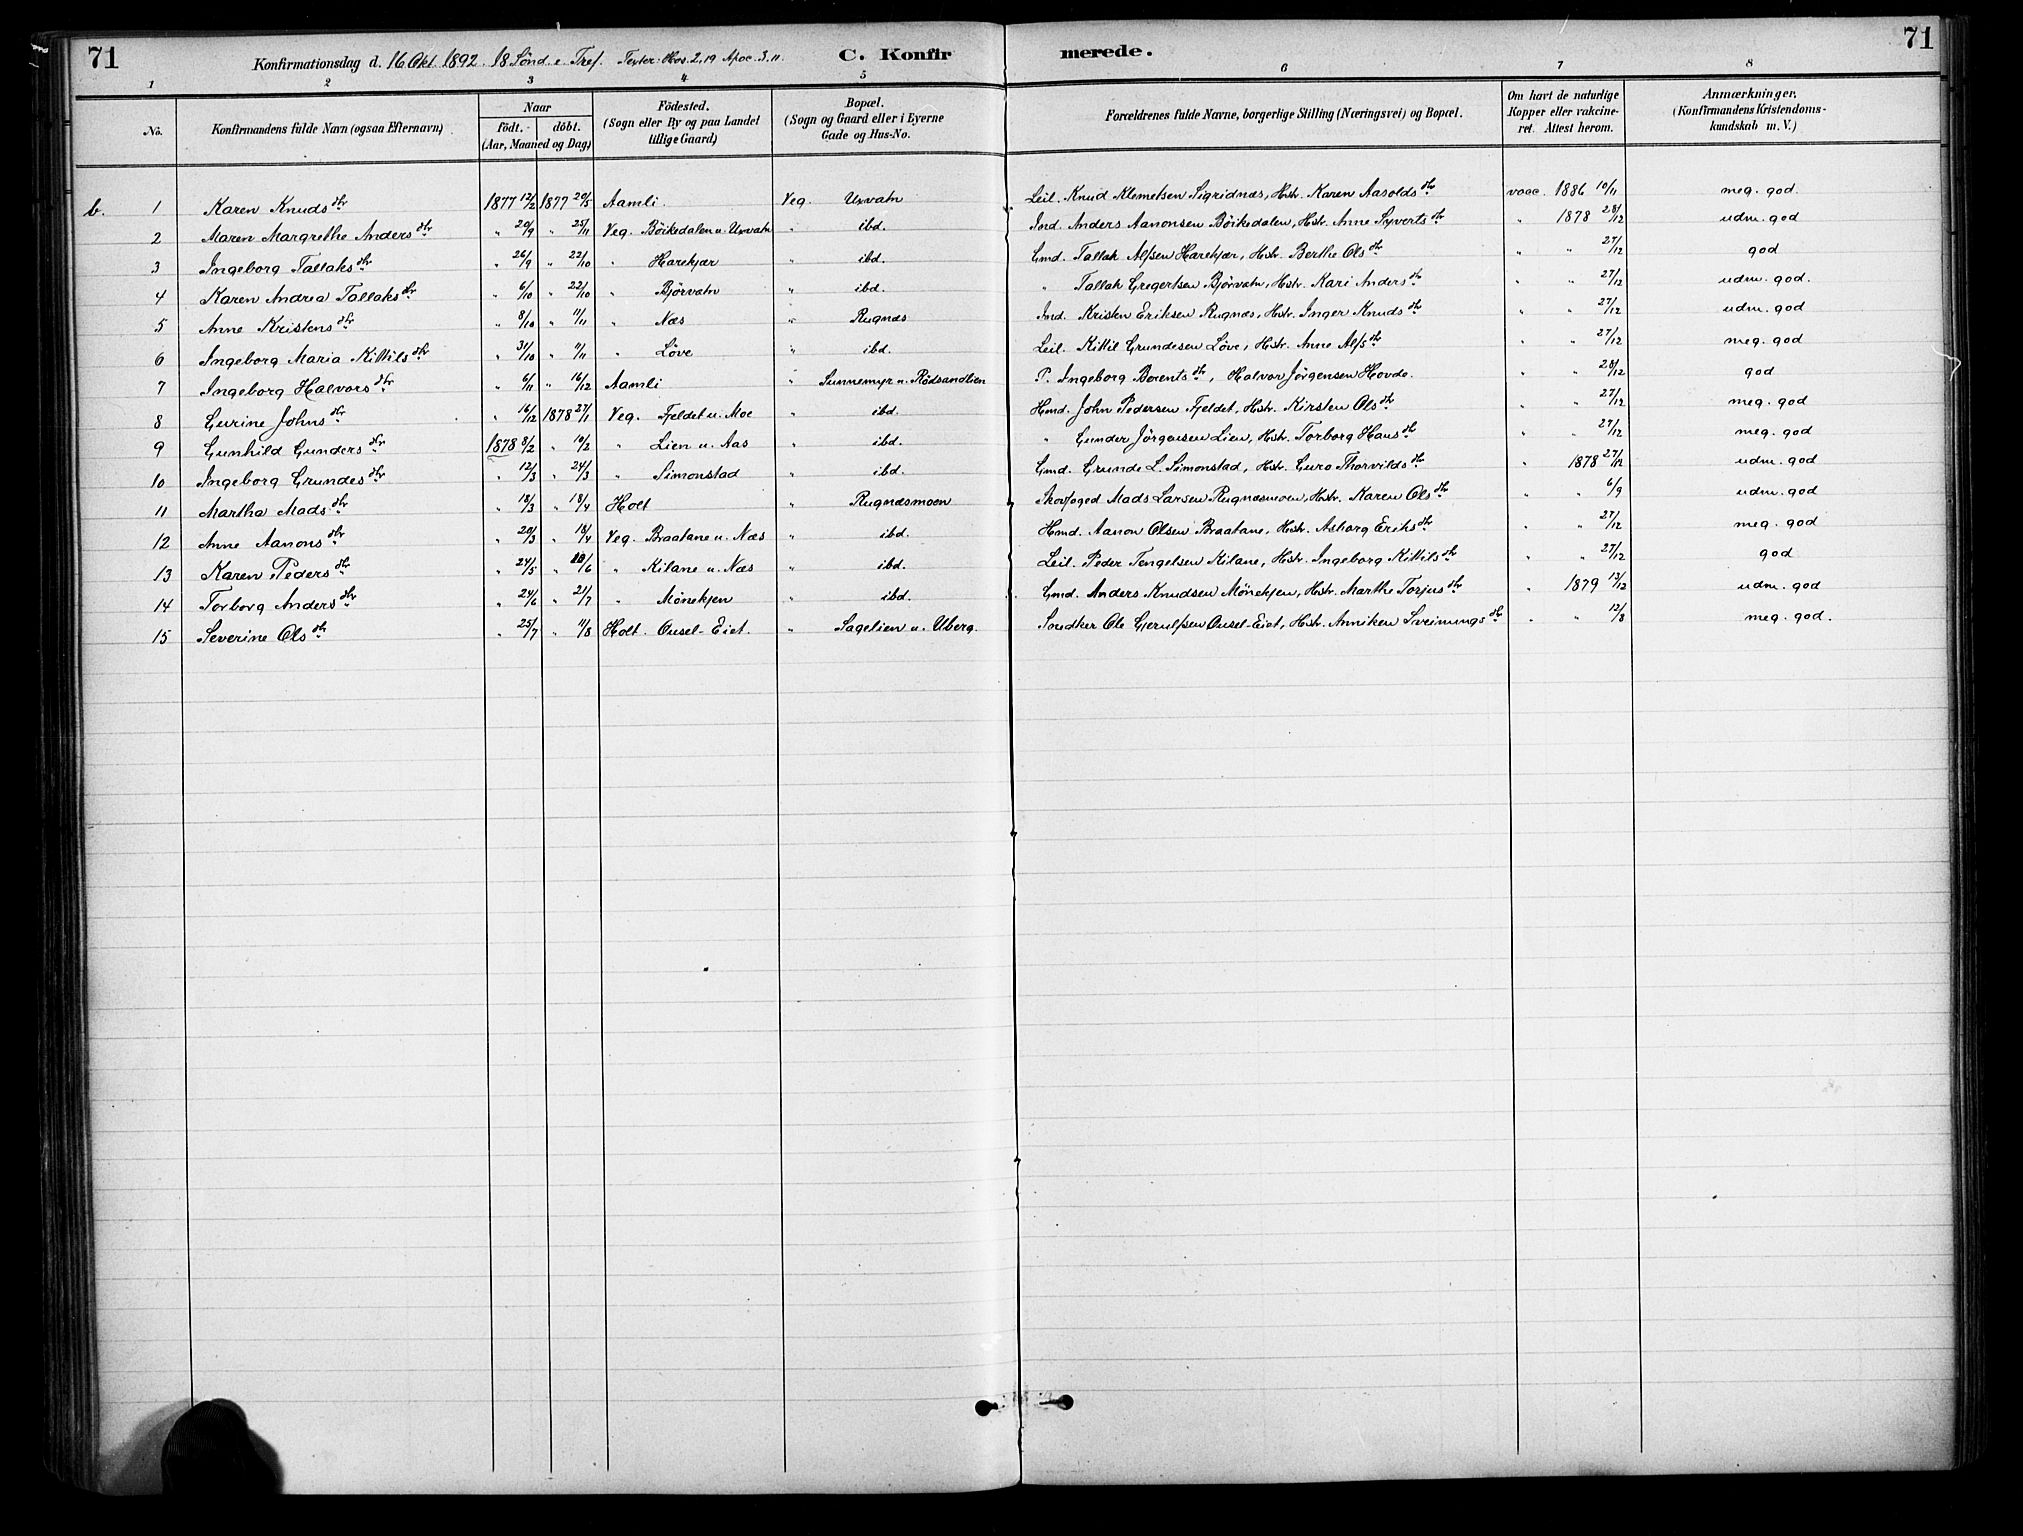 71 Konfirmationsdag d. 16 Okt. 1892. 18 Sönd. e. Tref. Texter: Hos. 2,19 Apoc. 3.11. C. Konfirmerede. 71
1 2 3 4 5 6 7 8
No. Konfirmandens fulde Navn (ogsaa Efternavn) Naar födt. döbt. (Aar, Maaned og Dag) Födested. (Sogn eller By og paa Landet tillige Gaard) Bopæl. (Sogn og Gaard eller i Byerne Gade og Hus-No. Forældrenes fulde Navne, borgerlige Stilling (Næringsvei) og Bopæl. Om havt de naturlige Kopper eller vakcineret. Attest herom. Anmærkninger. (Konfirmandens Kristendomskundskab m. V.)
b. 1 Karen Knudsdtr 1877 12/2 1877 20/5 Aamli. Veg. Uxvatn Leil. Knud Klemetsen Sigridnæs, Hstr. Karen Aasoldsdtr vacc. 1886 10/11 meg. god.
2 Maren Margrethe Andersdtr " 20/9 " 25/11 Veg. Böikedalen u. Uxvatn " ibd. Ind. Anders Aanonsen Böikedalen, Hstr. Anne Syvertsdtr " 1878 28/12 udm. god
3 Ingeborg Tallaksdtr " 26/9 " 22/10 " Harekjær " ibd. Gmd. Tallak Alfsen Harekjær, Hstr. Berthe Olsdtr " " 27/12 god
4 Karen Andrea Tallaksdtr " 6/10 " 22/10 " Bjørvatn " ibd. " Tallak Gregertsen Bjørvatn, Hstr. Kari Andersdtr " " 27/12 udm. god.
5 Anne Kristensdtr " 8/10 " 11/11 " Næs " Rugnæs Ind. Kristen Eriksen Rugnæs, Hstr. Inger Knudsdtr " " 27/12 udm. god
6 Ingeborg Maria Kittilsdtr " 31/10 " 11/11 " Löve " ibd. Leil. Kittil Grundesen Löve, Hstr. Anne Alfsdtr " " 27/12 meg. god
7 Ingeborg Halvorsdtr " 6/11 " 16/12 Aamli " Sunnemyr u. Rödsandlien P. Ingeborg Berentsdtr, Halvor Jörgensen Hovde. " " 28/12 god
8 Gurine Johnsdtr " 16/12 1878 27/1 Veg. Fjeldet u. Moe " ibd. Hmd. John Pedersen Fjeldet, Hstr. Kirsten Olsdtr " " 27/12 meg. god
9 Gunhild Gundersdtr 1878 8/2 " 10/2 " Lien u. Aas " ibd. " Gunder Jörgensen Lien, Hstr. Torborg Hansdtr " " 27/12 meg. god
10 Ingeborg Grundesdtr " 12/3 " 24/3 " Simonstad " ibd. Gmd. Grunde L. Simonstad, Hstr. Guro Thorvildsdtr " 1878 27/12 udm. god
11 Martha Madsdtr " 18/3 " 18/4 Holt " Rugnæsmoen Skovfoged Mads Larsen Rugnæsmoen, Hstr. Karen Olsdtr " " 6/9 udm. god
12 Anne Aanonsdtr " 20/3 " 18/4 Veg. Braatane u. Næs " ibd. Hmd. Aanon Olsen Braatane, Hstr. Asborg Eriksdtr " " 27/12 meg. god
13 Karen Pedersdtr " 24/5 " /6 " Kilane u. Næs " ibd. Leil. Peder Tengelsen Kilane, Hstr. Ingeborg Kittilsdtr " " 27/12 god
14 Torborg Andersdtr " 24/6 " 21/7 " Mönekjen " ibd. Gmd. Anders Knudsen Mönekjen, Hstr. Marthe Torjusdtr " 1879 13/12 udm. god
15 Severine Olsdtr " 25/7 " 11/8 Holt. Ousel-Eiet. " Sagelien u. Uberg. Snedker Ole Gjerulfsen Ousel-Eiet, Hstr. Anniken Sveinungsdtr " " 12/8 meg. god.